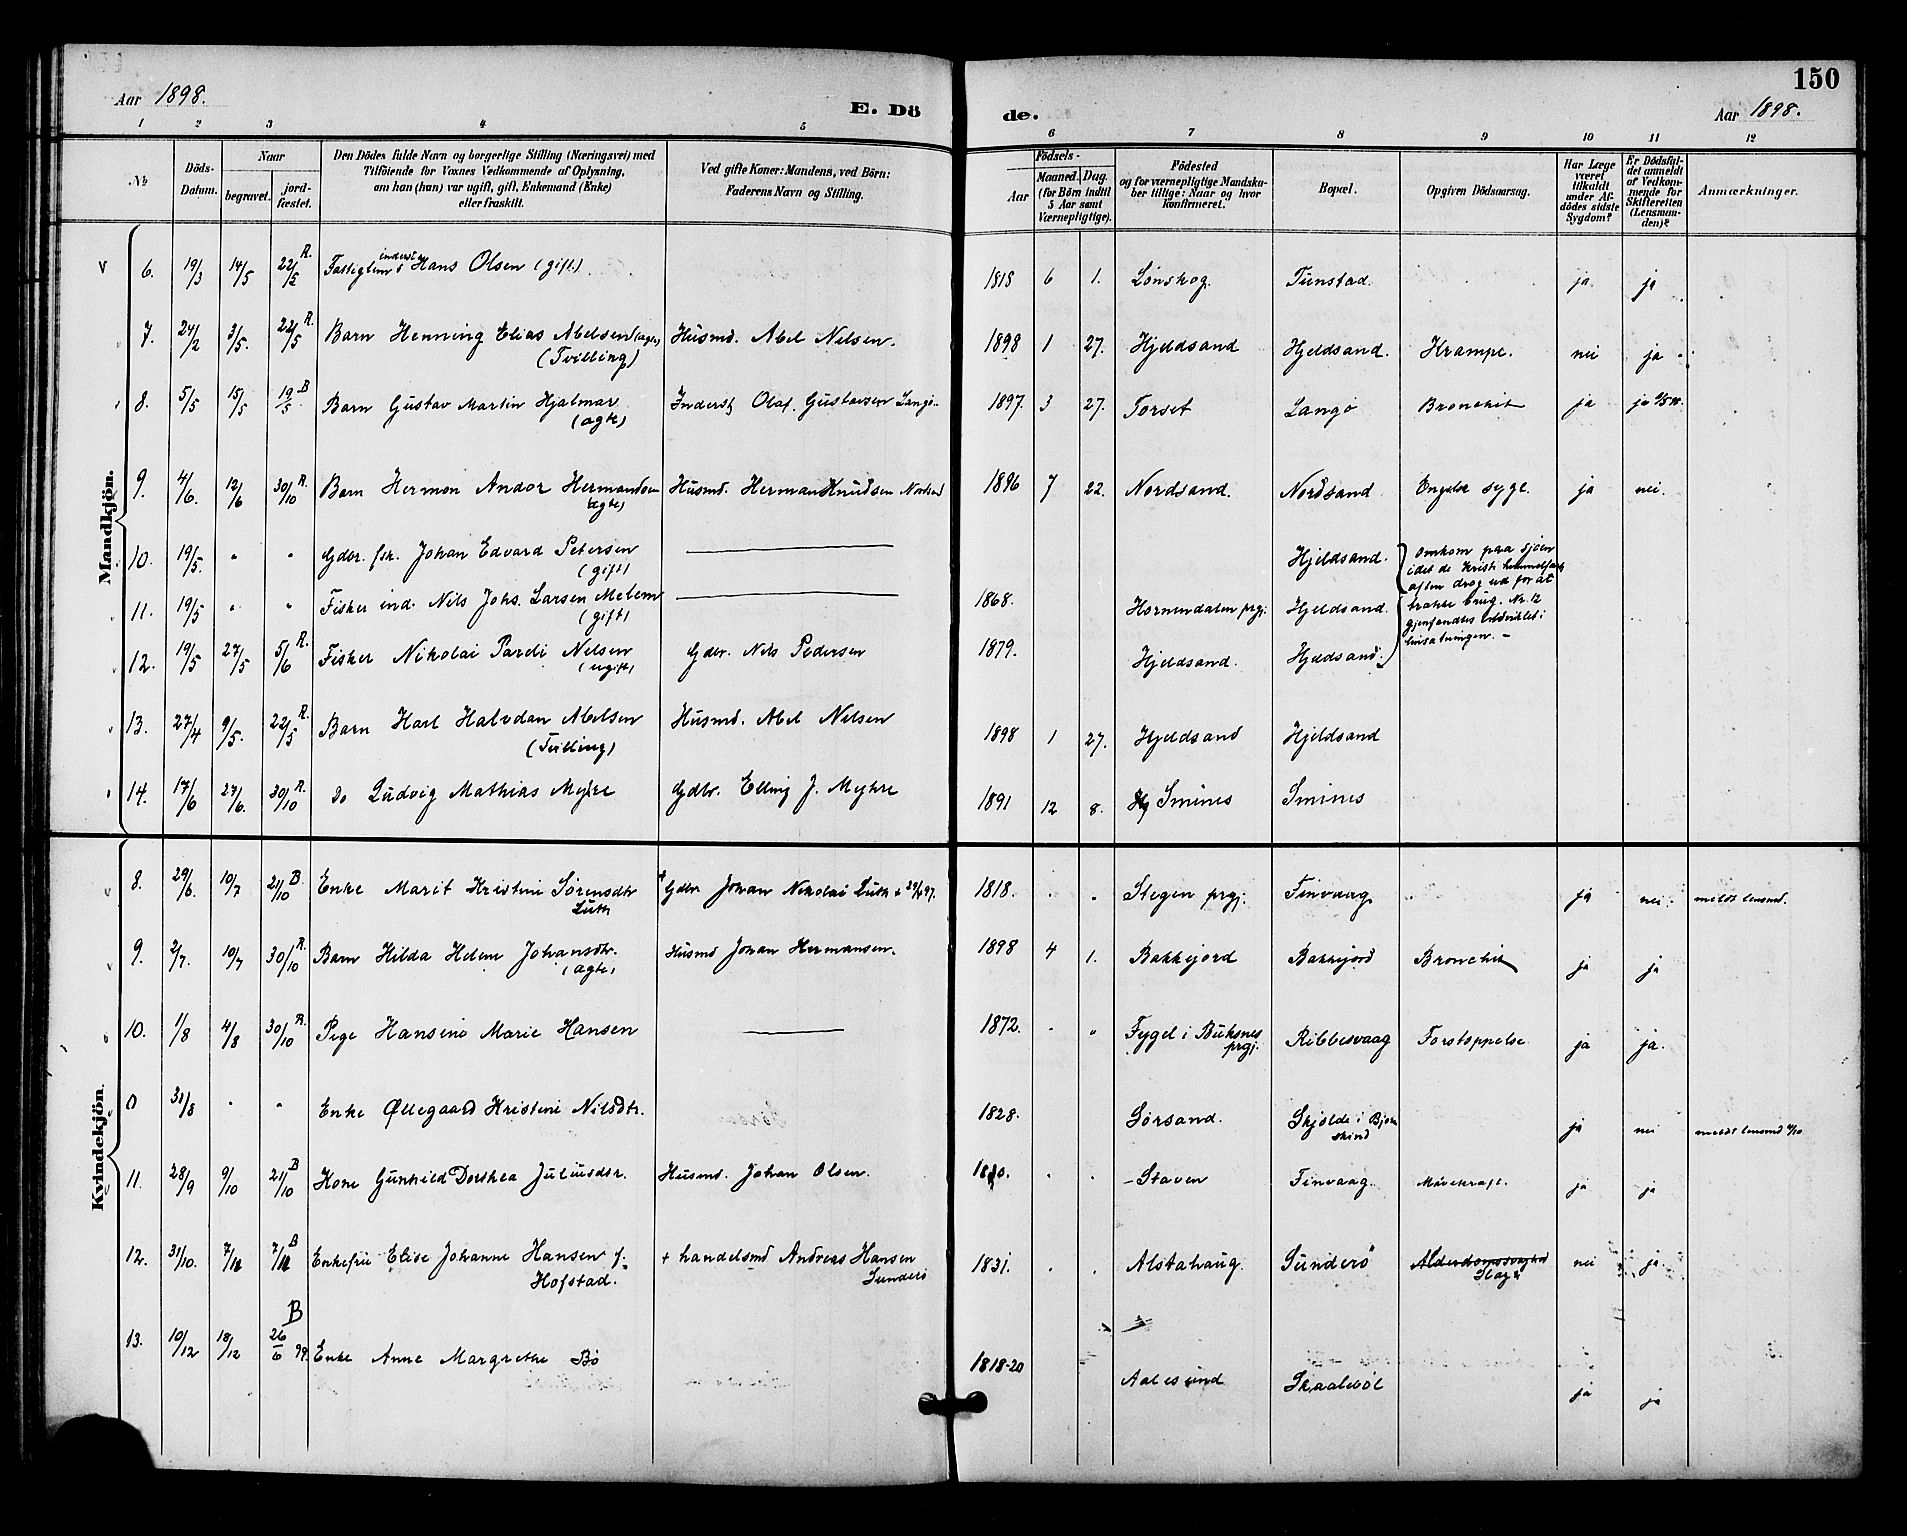 150
Aar 1898.
E. Dö
de.
Aar 1898.
1 2 3 4 5 6 7 8 9 10 11 12
No
Döds-Datum.
Naar
begravet.
jord-fæstet.
Den Dödes fulde Navn og borgerlige Stilling (Næringsvei) med
Tilföiende for Voxnes Vedkommende af Oplysning,
om han (hun) var ugift, gift, Enkemand (Enke)
eller fraskilt.
Ved gifte Koner: Mandens, ved Börn:
Faderens Navn og Stilling.
Födsels-
Aar
Maaned. Dag.
(for Börn indtil
5 Aar samt
Værnepligtige).
Födested
og for værnepligtige Mandska-
ber tillige: Naar og hvor
konfirmeret.
Bopæl.
Opgiven Dödsaarsag.
Har Læge
været
tilkaldt
under Af-
dödes sidste
Sygdom?
Er Dödsfal-
det anmeldt
af Vedkom-
mende for
Skifteretten
(Lensman-
den)?
Anmærkninger.
Mandkjön.
6. 19/3 14/5 22/5 R. inderst Hans Olsen (gift) 1818 6 1. Lønskog. Tunstad. ja ja
7. 24/2 3/5. 22/5 R. Barn Henning Elias Abelsen (ægte) Husmd. Abel Nilsen. 1898 1 27. Hjeldsand Hjeldsand. Krampe. nei ja
(Tvilling)
8. 5/5 15/5 19/5 B Barn Gustav Martin Hjalmar Inderst Olaf Gustavsen Langø. 1897. 3 27. Torset Langø Bronchit ja ja
(ægte)
9. 4/6. 12/6 30/10 R. Barn Herman Andor Hermandsen Husmd. Herman Knudsen Nordsand 1896 7 22. Nordsand. Nordsand Engelsk syge. ja nei.
(ægte)
10. 19/5. " " Gdbr. fsk. Johan Edvard Petersen Hjeldsand. omkom paa sjøen
(gift) idet de Kristi himmelfarts
aften drog ud for at
11. 19/5 " " Fisker ind. Nils Johs. Larsen Melem 1868. Hornendalen prgj. Hjeldsand. trække brug. Nr. 12
(gift) gjenfandtes indviklet i
linsætningen. -
12. 19/5 27/5 5/6 R. Fisker Nikolai Pareli Nilsen Gdbr. Nils Pedersen 1879. Hjeldsand. Hjeldsand.
(ugift)
13. 27/4 9/5. 22/5 R. Barn Karl Halvdan Abelsen Husmd. Abel Nilsen 1898 1 27. Hjeldsand Hjeldsand
(Tvilling)
14. 17/6 27/6. 30/10 R. Do Ludvig Mathias Myhre Gdbr. Elling J. Myhre 1891 12 8. Smines Smines
Kvindekjön.
8. 29/6. 10/7 21/10 B. Enke Marit Kristine Sørensdtr + Gdbr Johan Nikolai Luth 1818. " Stegen prgj. Finvaag ja nei meldt lensmd.
Luth
9. 2/7. 10/7 30/10 R. Barn Hilda Helene Johansdtr. Husmd Johan Hermansen. 1898 4 1. Bakkejord Bakkejord Bronchit ja ja
(ægte)
10. 1/8 4/8 30/10 R. Pige Hansine Marie Hansen 1872. " " Fygel i Buksnes Ribbesvaag Forstoppelse ja ja.
prgj.
0 31/8 " " Enke Øllegaard Kristine Nilsdtr. 1828. Sørsand. Skjolde i Bjorn ja nei meldt lensmd
skind
11. 28/9 9/10 21/10 B Kone Gunhild Dorthea Juliusdtr. Husmd. Johan Olsen. Staven Finvaag. Mavekræft. ja ja
12. 31/10. 7/11 7/11 B Enkefrü Elise Johanne Hansen f. + handelsmd Andreas Hansen 1831. Alstahaug. Sunderø Alderdomssvaghed nei ja.
Hofstad. Sunderø Slag
13. 10/12 18/12 26/6 99. B Enke Anne Margrethe Bø 1818-20 Aalesund Skaalebøl ja ja